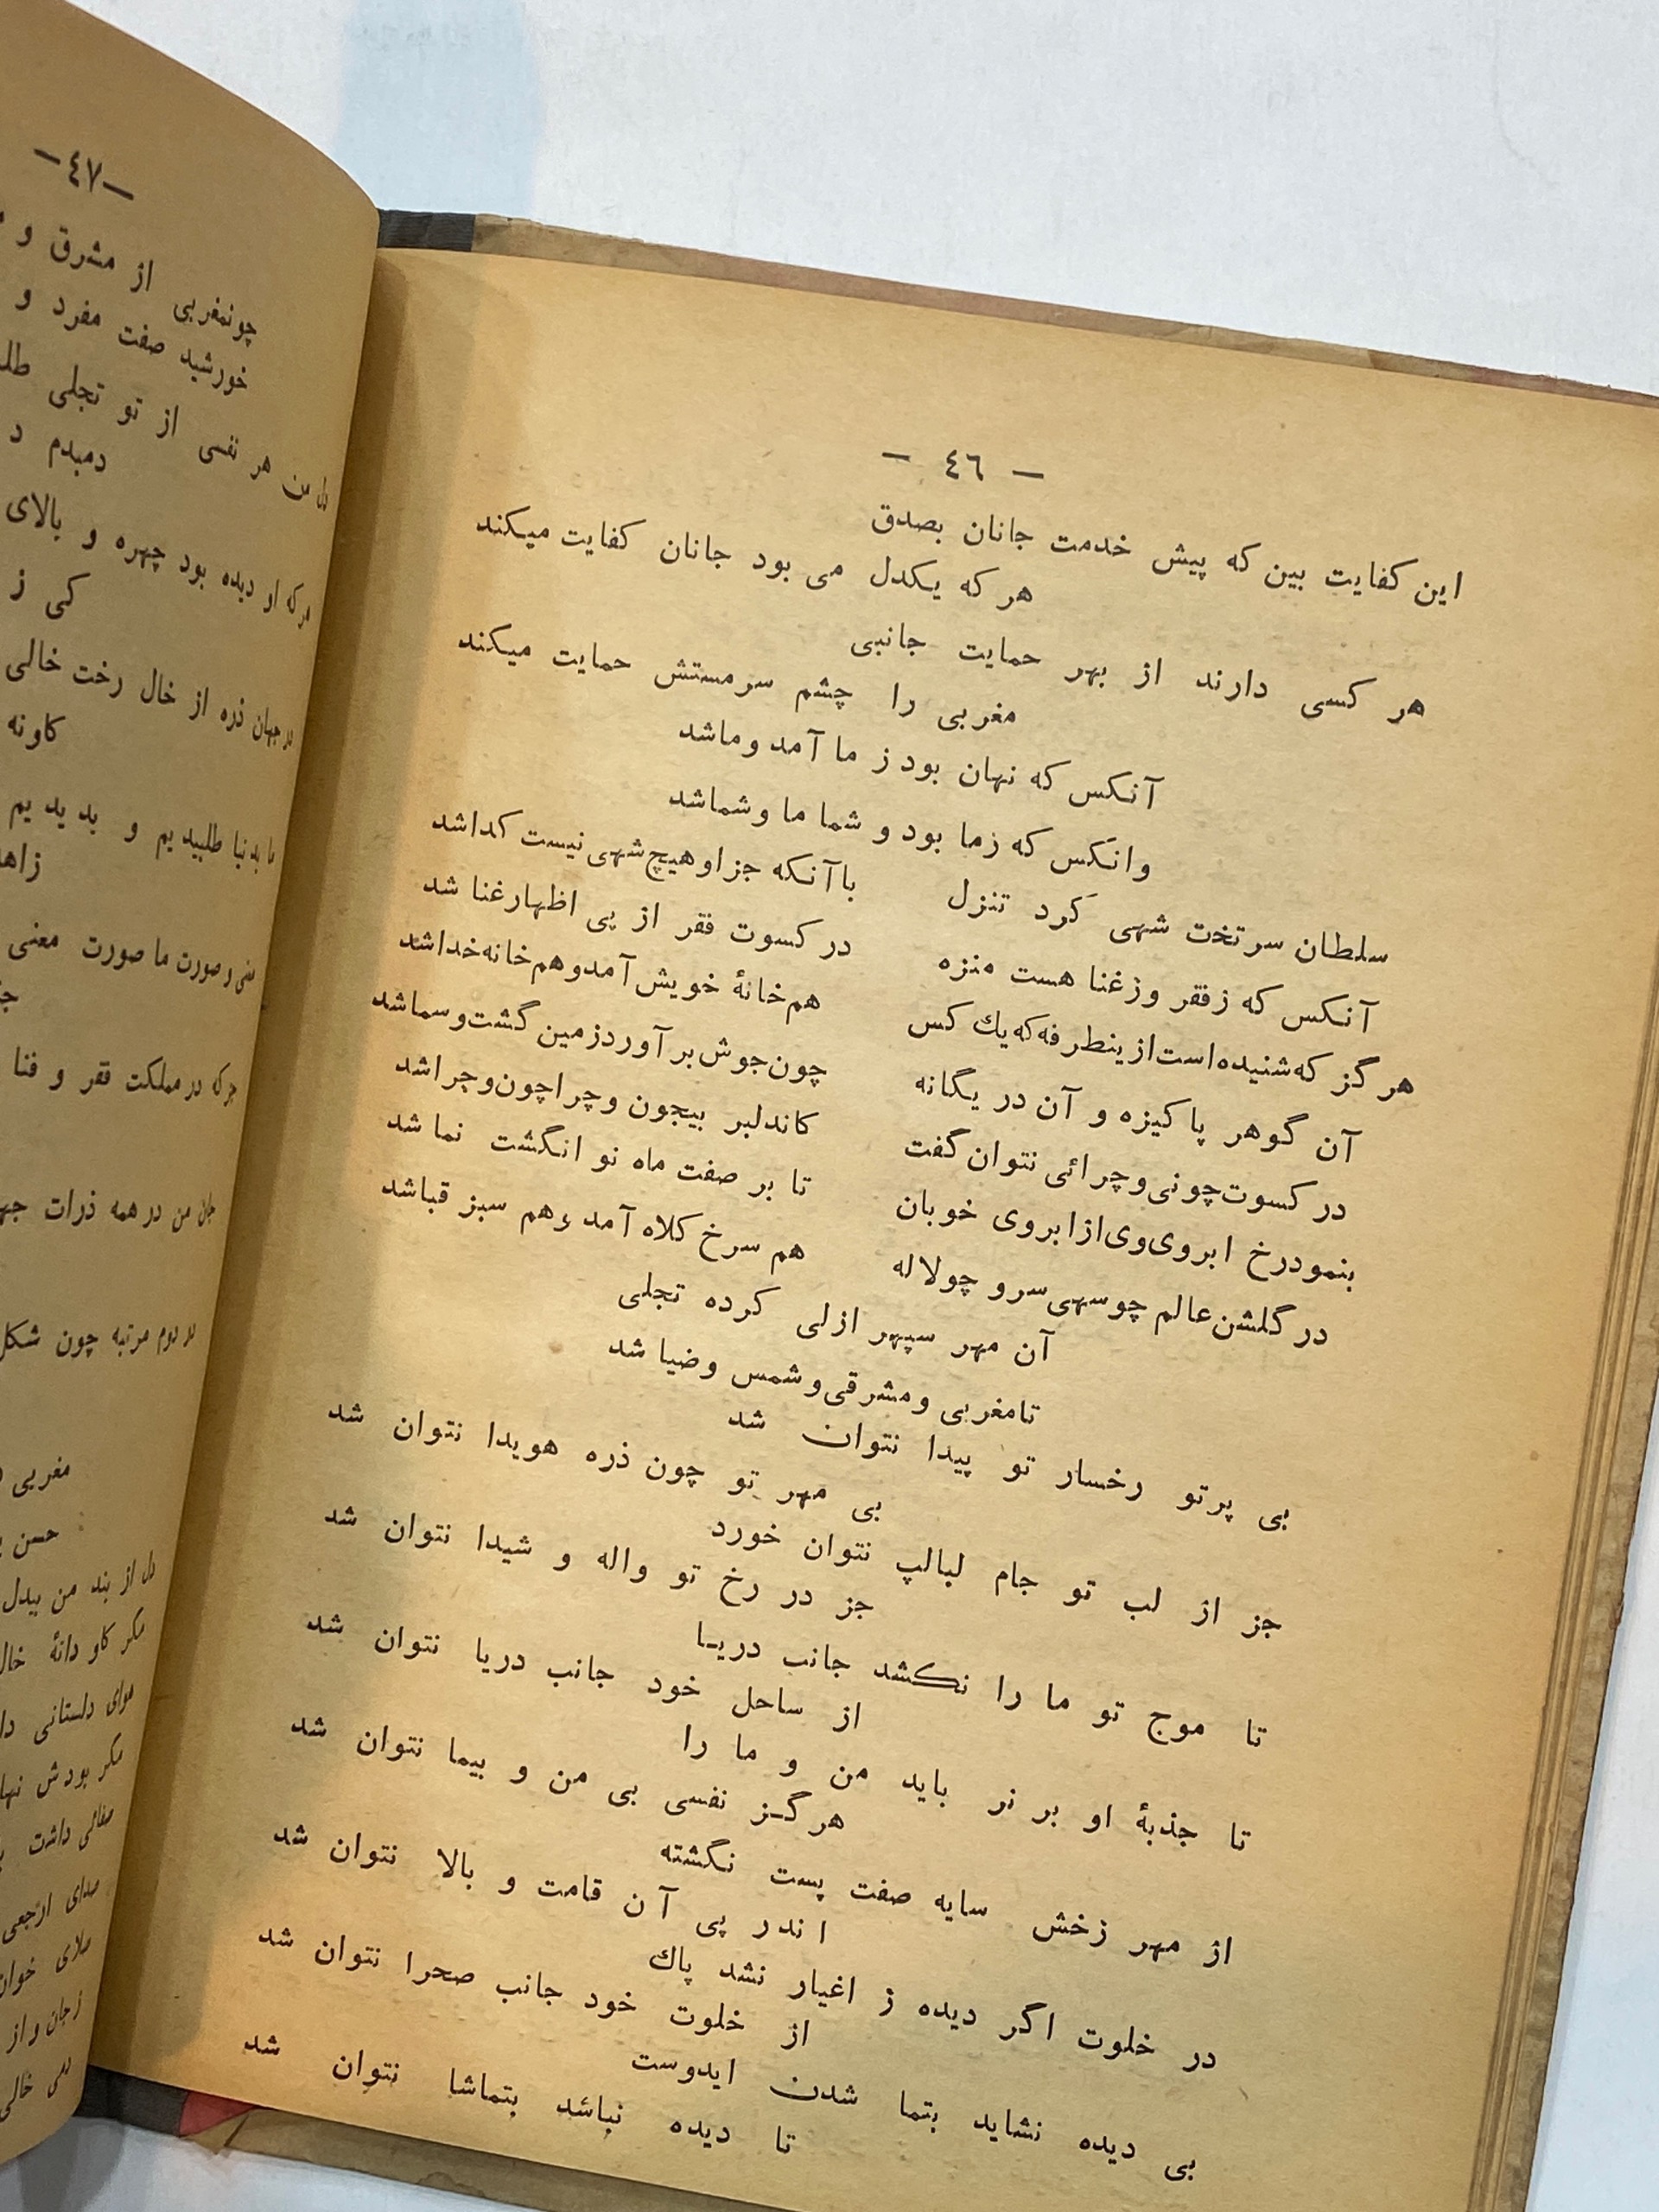 — ٤٦ —
این کفایت بین که پیش خدمت جانان بصدق
هر که یکدل می بود جانان کفایت میکند
هر کسی دارند از بهر حمایت جانبی
مغربی را چشم سرمستش حمایت میکند
آنکس که نهان بود ز ما آمد و ماشد
وانکس که زما بود و شما ما وشماشد
سلطان سر تخت شهی کرد تنزل
با آنکه جز او هیچ شهی نیست کداشد
آنکس که ز فقر وز غنا هست منزه
در کسوت فقر از پی اظهار غنا شد
هر گز که شنیده است از ینطرفه که یك کس
هم خانهٔ خویش آمد و هم خانه خداشد
آن گوهر پاکیزه و آن در یگانه
چون جوش بر آورد زمین گشت و سماشد
در کسوت چونی و چرائی نتوان گفت
کاندلبر بیچون و چرا چون و چراشد
بنمود رخ ابروی وی از ابروی خوبان
تا بر صفت ماه نو انگشت نما شد
در گلشن عالم چو سهی سرو چولاله
هم سرخ کلاه آمد و هم سبز قباشد
آن مهر سپهر ازلی کرده تجلی
تامغربی و مشرقی و شمس وضیا شد
بی پرتو رخسار تو پیدا نتوان شد
بی مهر تو چون ذره هویدا نتوان شد
جز از لب تو جام لبالپ نتوان خورد
جز در رخ تو واله و شیدا نتوان شد
تا موج تو ما را نکشد جانب دریا
از ساحل خود جانب دریا نتوان شد
تا جذبهٔ او بر نر باید من و ما را
هرگز نفسی بی من و بیما نتوان شد
از مهر زخش سایه صفت پست نگشته
اندر پی آن قامت و بالا نتوان شد
در خلوت اگر دیده ز اغیار نشد پاك
از خلوت خود جانب صحرا نتوان شد
بی دیده نشاید بتما شدن ایدوست
تا دیده نباشد بتماشا نتوان شد
—٤٧—
چونمغربی از مشرق و
خورشید صفت مفرد و
دل من هر نفسی از تو تجلی
دمبدم
هر که او دیده بود چهره و بالای
کی ز
در جهان ذره از خال رخت خالی
کاونه
ما بدنیا طلبیدیم و بدیدیم
معنی و صورت ما صورت معنی
هر که در مملکت فقر و فنا
جان من در همه ذرات
در دوم مرتبه چون شکل
مغربی
حسن
دل از بند من بیدل
مگر کاو دانهٔ خال
هوای دلستانی
مگر بودش
صفائی داشت
صدای ارجعی
صلای
ز جان و از